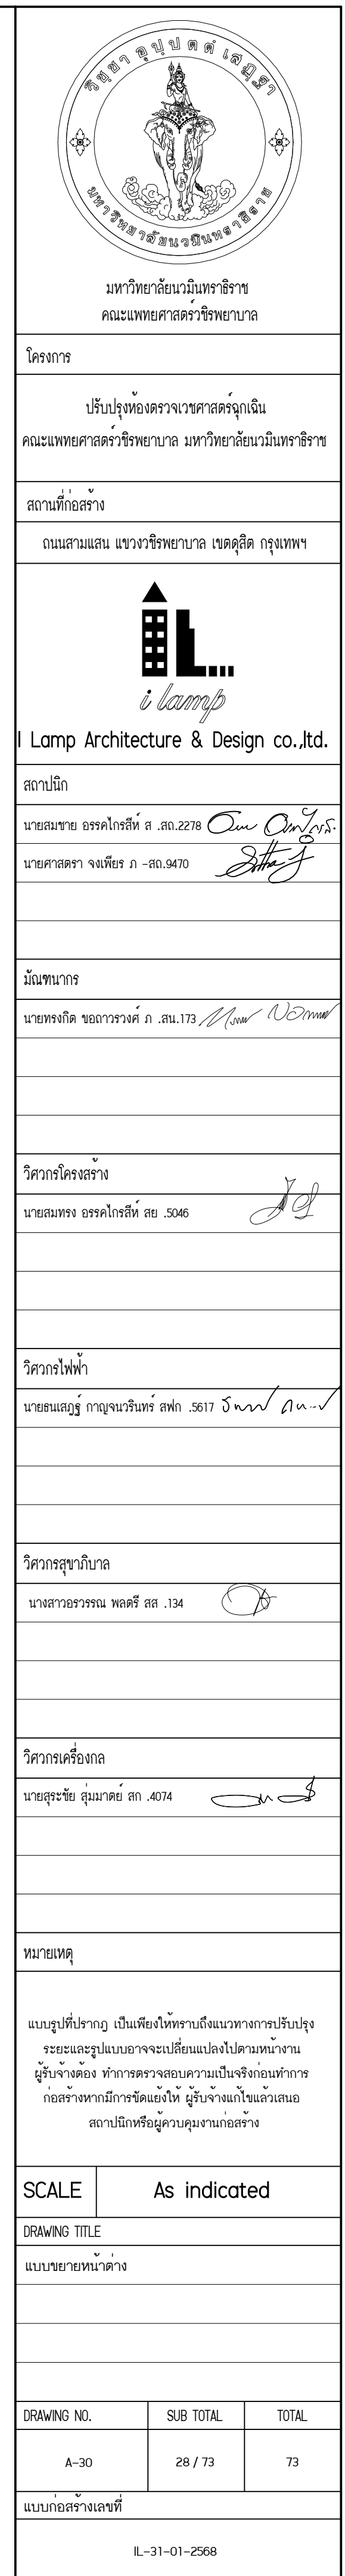 วิชฺชา อุปฺปตตํ เสฏฺฐา
มหาวิทยาลัยนวมินทราธิราช
มหาวิทยาลัยนวมินทราธิราช
คณะแพทยศาสตร์วชิรพยาบาล
โครงการ
ปรับปรุงห้องตรวจเวชศาสตร์ฉุกเฉิน
คณะแพทยศาสตร์วชิรพยาบาล มหาวิทยาลัยนวมินทราธิราช
สถานที่ก่อสร้าง
ถนนสามแสน แขวงวชิรพยาบาล เขตดุสิต กรุงเทพฯ
i lamp
I Lamp Architecture & Design co.,ltd.
สถาปนิก
นายสมชาย อรรคไกรสีห์ ส .สถ.2278
นายศาสตรา จงเพียร ภ -สถ.9470
มัณฑนากร
นายทรงกิต ขอถาวรวงศ์ ภ .สน.173
วิศวกรโครงสร้าง
นายสมทรง อรรคไกรสีห์ สย .5046
วิศวกรไฟฟ้า
นายธนเสฏฐ์ กาญจนวรินทร์ สฟก .5617
วิศวกรสุขาภิบาล
นางสาวอรวรรณ พลตรี สส .134
วิศวกรเครื่องกล
นายสุระชัย สุ่มมาตย์ สก .4074
หมายเหตุ
แบบรูปที่ปรากฎ เป็นเพียงให้ทราบถึงแนวทางการปรับปรุง
ระยะและรูปแบบอาจจะเปลี่ยนแปลงไปตามหน้างาน
ผู้รับจ้างต้อง ทำการตรวจสอบความเป็นจริงก่อนทำการ
ก่อสร้างหากมีการขัดแย้งให้ ผู้รับจ้างแก้ไขแล้วเสนอ
สถาปนิกหรือผู้ควบคุมงานก่อสร้าง
SCALE As indicated
DRAWING TITLE
แบบขยายหน้าต่าง
DRAWING NO. SUB TOTAL TOTAL
A-30 28 / 73 73
แบบก่อสร้างเลขที่
IL-31-01-2568